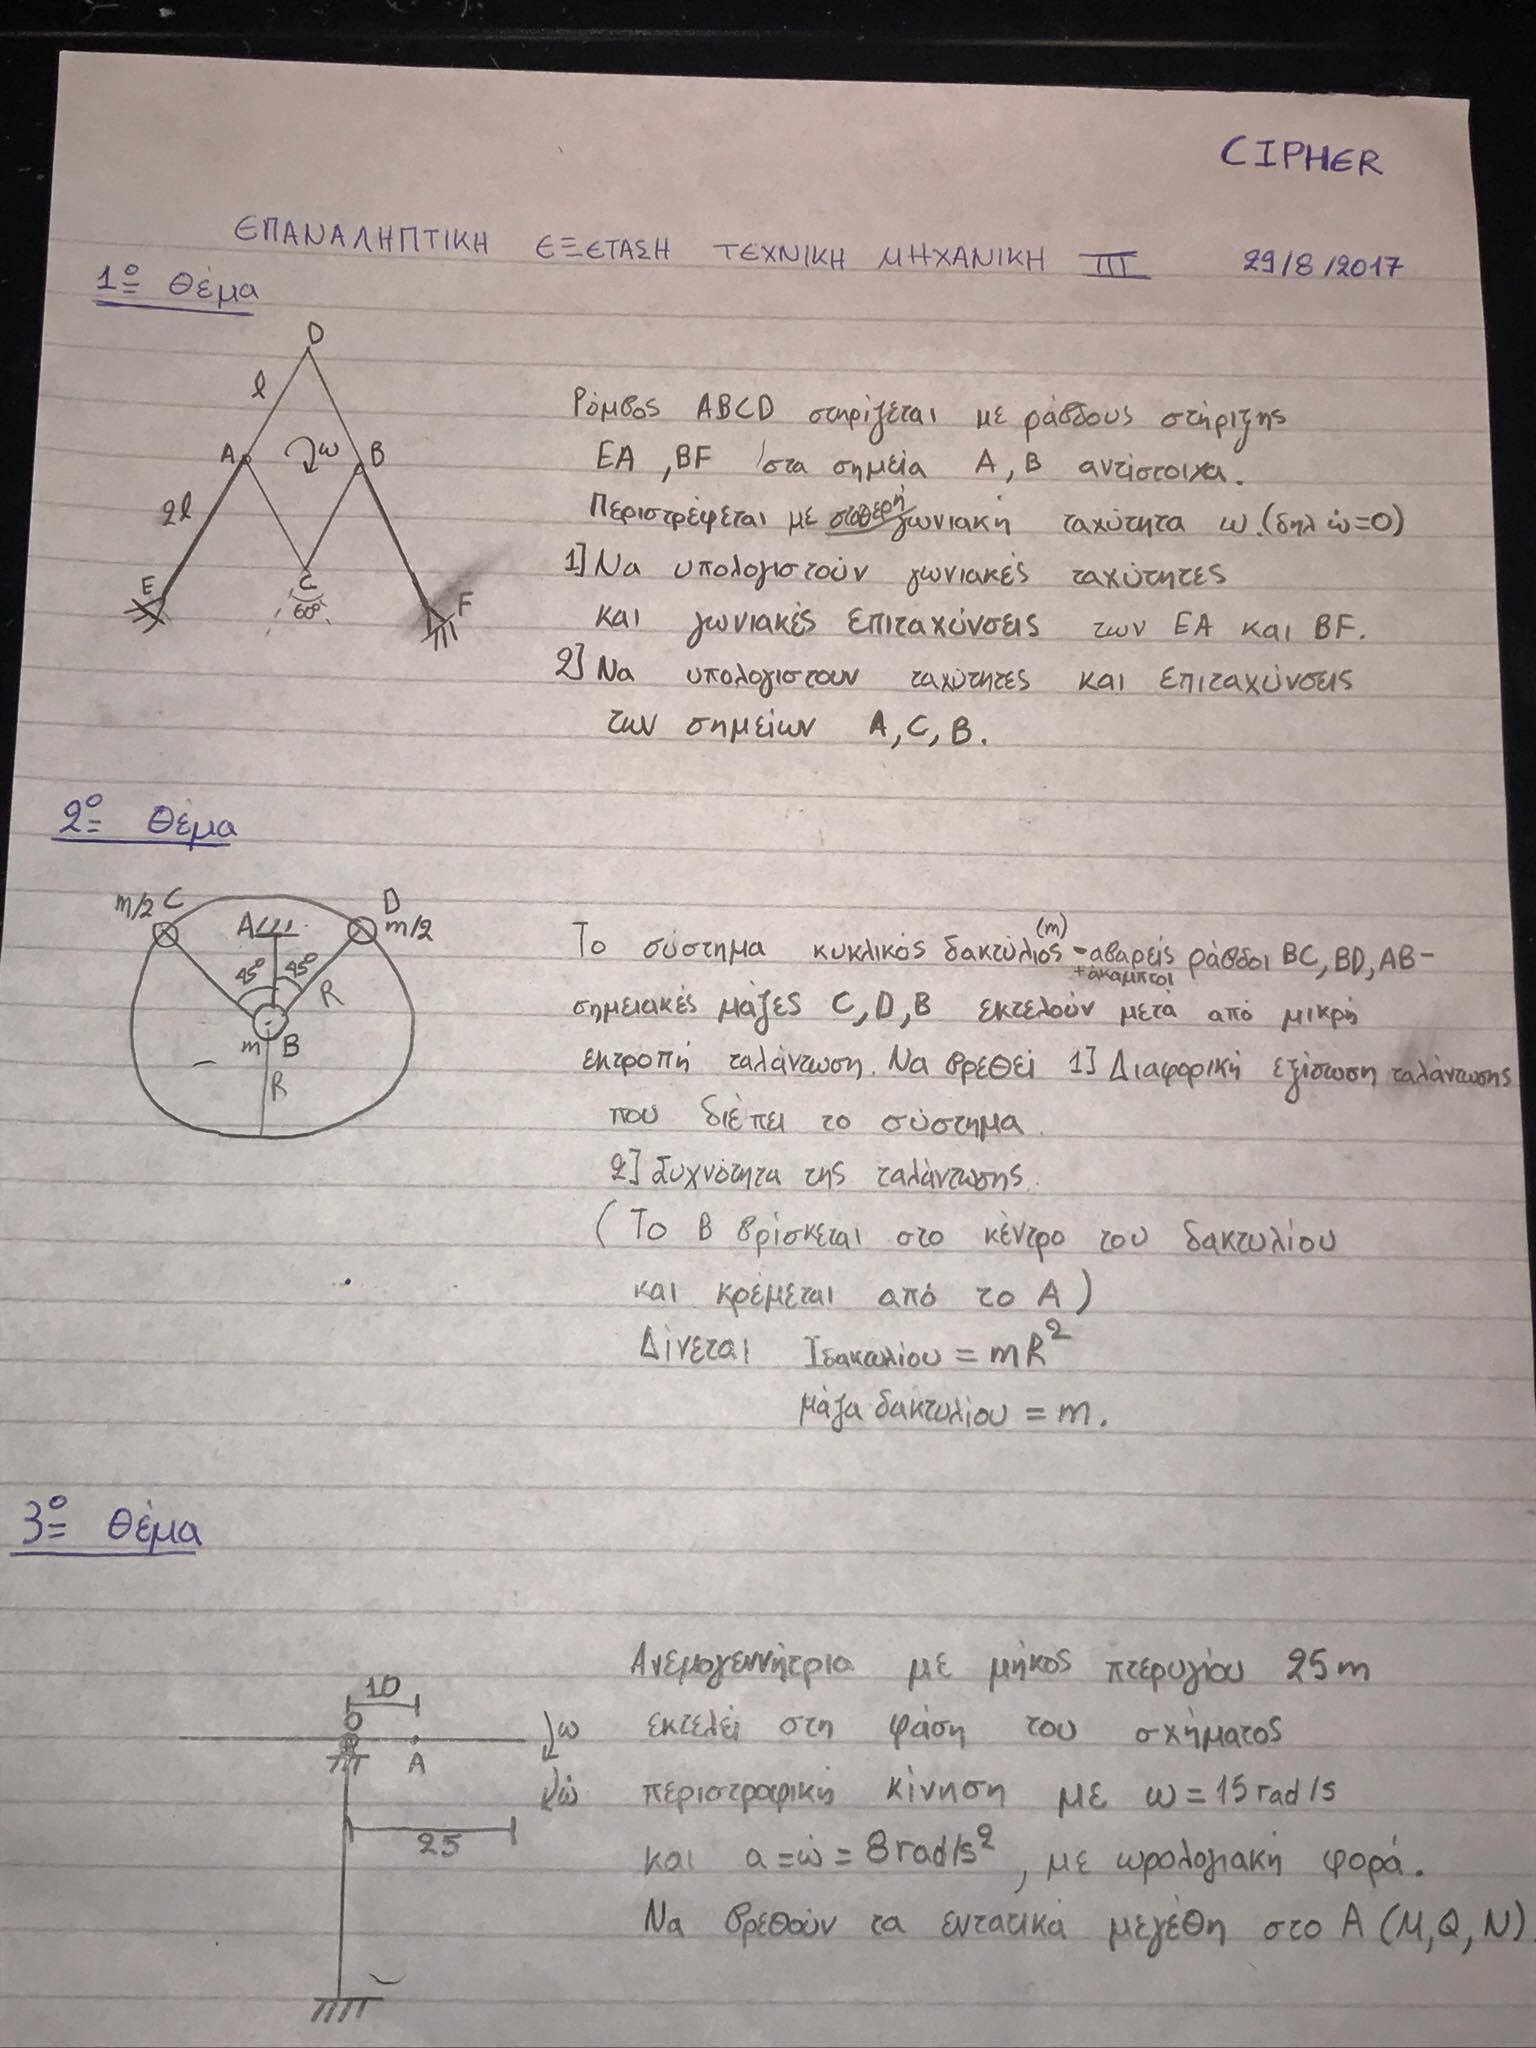 CIPHER
ΕΠΑΝΑΛΗΠΤΙΚΗ ΕΞΕΤΑΣΗ ΤΕΧΝΙΚΗ ΜΗΧΑΝΙΚΗ III 29/8/2017
1ο Θέμα
D
l
A ω B
2l
E C F
60°
Ρόμβος ABCD στηρίζεται με ράβδους στήριξης
EA, BF στα σημεία A, B αντίστοιχα.
Περιστρέφεται με σταθερή γωνιακή ταχύτητα ω. (δηλ ω̇=0)
1] Να υπολογιστούν γωνιακές ταχύτητες
και γωνιακές επιταχύνσεις των EA και BF.
2] Να υπολογιστουν ταχύτητες και επιταχύνσεις
των σημείων A, C, B.
2ο Θέμα
m/2 C A D m/2
45° 45° R
m B
R
Το σύστημα κυκλικός δακτύλιος (m) - αβαρείς + άκαμπτοι ράβδοι BC, BD, AB -
σημειακές μάζες C, D, B εκτελούν μετά από μικρή
εκτροπή ταλάντωση. Να βρεθεί 1] Διαφορική εξίσωση ταλάντωσης
που διέπει το σύστημα.
2] Συχνότητα της ταλάντωσης.
(Το B βρίσκεται στο κέντρο του δακτυλίου
και κρέμεται από το A)
Δίνεται Ιδακτυλίου = mR²
μάζα δακτυλίου = m.
3ο Θέμα
10
O A ω
ω̇
25
Ανεμογεννήτρια με μήκος πτερυγίου 25m
εκτελεί στη φάση του σχήματος
περιστροφική κίνηση με ω = 15 rad/s
και a = ω̇ = 8 rad/s², με ωρολογιακή φορά.
Να βρεθούν τα εντατικά μεγέθη στο A (M, Q, N).